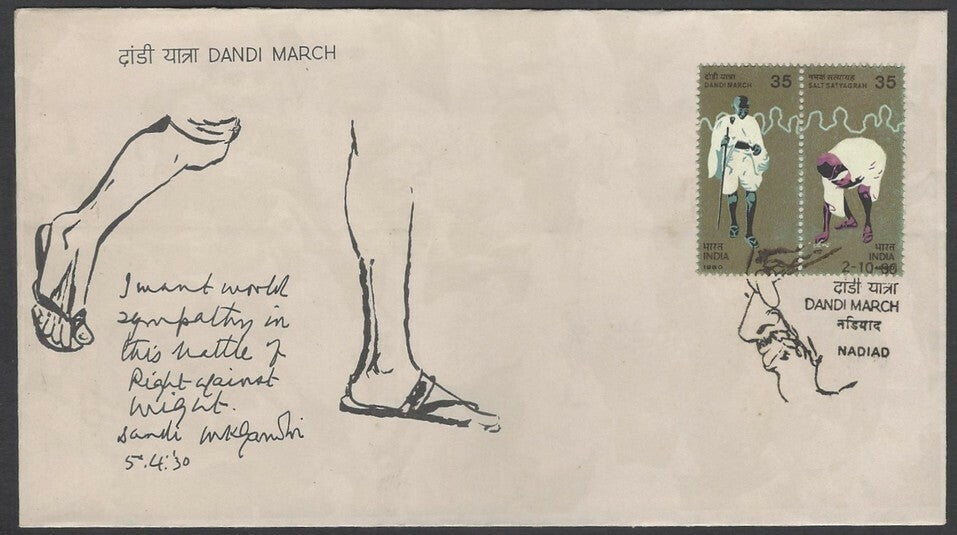 दांडी यात्रा DANDI MARCH
दांडी यात्रा 35
DANDI MARCH
भारत
INDIA
1980
नमक सत्याग्रह 35
SALT SATYAGRAH
भारत
INDIA
2-10-80
दांडी यात्रा
DANDI MARCH
नडियाद
NADIAD
I want world
sympathy in
this battle of
Right against
might.
Dandi MKGandhi
5.4.'30